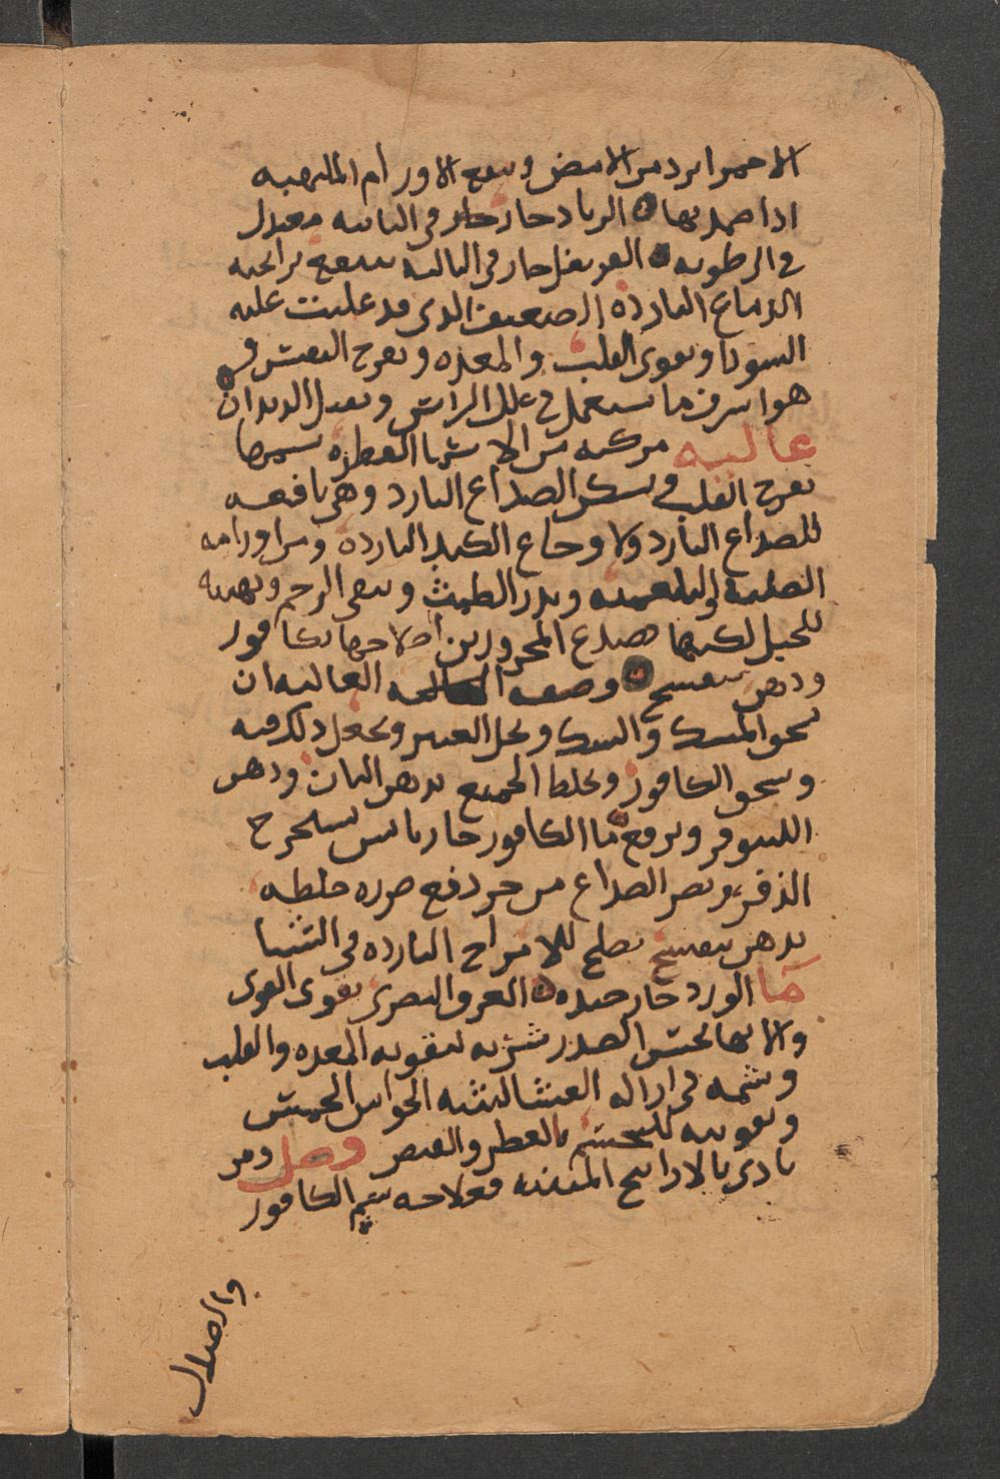 الاحمر ابرد من الابيض وينفع الاورام الملتهبه
اذا ضمد بها الزباد حار في الثانيه معتدل
في الرطوبه القرنفل حار في الثالثه ينفع برايحته
الدماغ البارده الضعيف الذي قد غلبت عليه
السودا ويقوي القلب والمعده ويفرح النفس و
هو اشرف ما يستعمل في علل الراس ويقتل الديدان
غاليه مركبه من الاشيا العطره شمها
يفرح القلب ويسكن الصداع البارد وهي نافعه
للصداع البارد ولاوجاع الكبد البارده ومن اورامه
الصلبه والبلغميه ويدر الطمث وينقي الرحم ويهييه
للحبل لكنها تصدع المحرورين اصلاحها بكافور
ودهن بنفسج وصفه الغاليه ان
يسحق المسك والسك ويحل العنبر ويجعل ذلك فيه
ويسحق الكافور ويخلط الجميع بدهن البان ودهن
اللينوفر ويرفع ما الكافور حار يابس يستخرج
الذفر ويضر الصداع من حر دفع ضرره خلطه
بدهن بنفسج يصلح للامزاج البارده في الشتا
ما الورد حار جيده العرق النصري يقوي القوي
والالتها يخشن الصدر شربه لتقويه المعده والقلب
وشمه في ازاله الغشا لتنبه الحواس الخمس
وتقويته للجسم بالعطر والقبض وصل ومن
تاذي بالاراييح المنتنه فعلاجه شم الكافور
والصندل